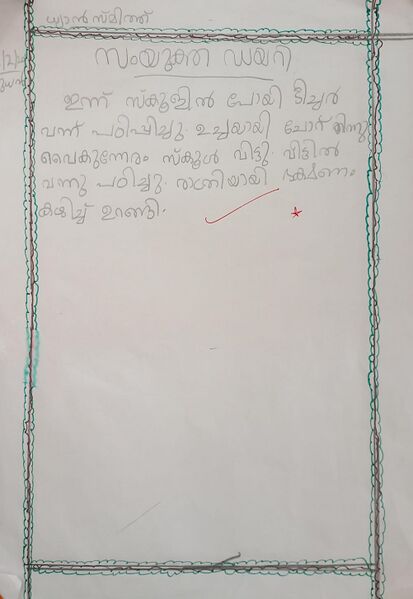 ധ്യാൻ സ്മിത്ത്
സംയുക്ത ഡയറി
ഇന്ന് സ്കൂളിൽ പോയി ടീച്ചർ
വന്ന് പഠിപ്പിച്ചു. ഉച്ചയായി ചോറ് തിന്നു
വൈകുന്നേരം സ്കൂൾ വിട്ടു. വീട്ടിൽ
വന്നു പഠിച്ചു. രാത്രിയായി ഭക്ഷണം
കഴിച്ച് ഉറങ്ങി.